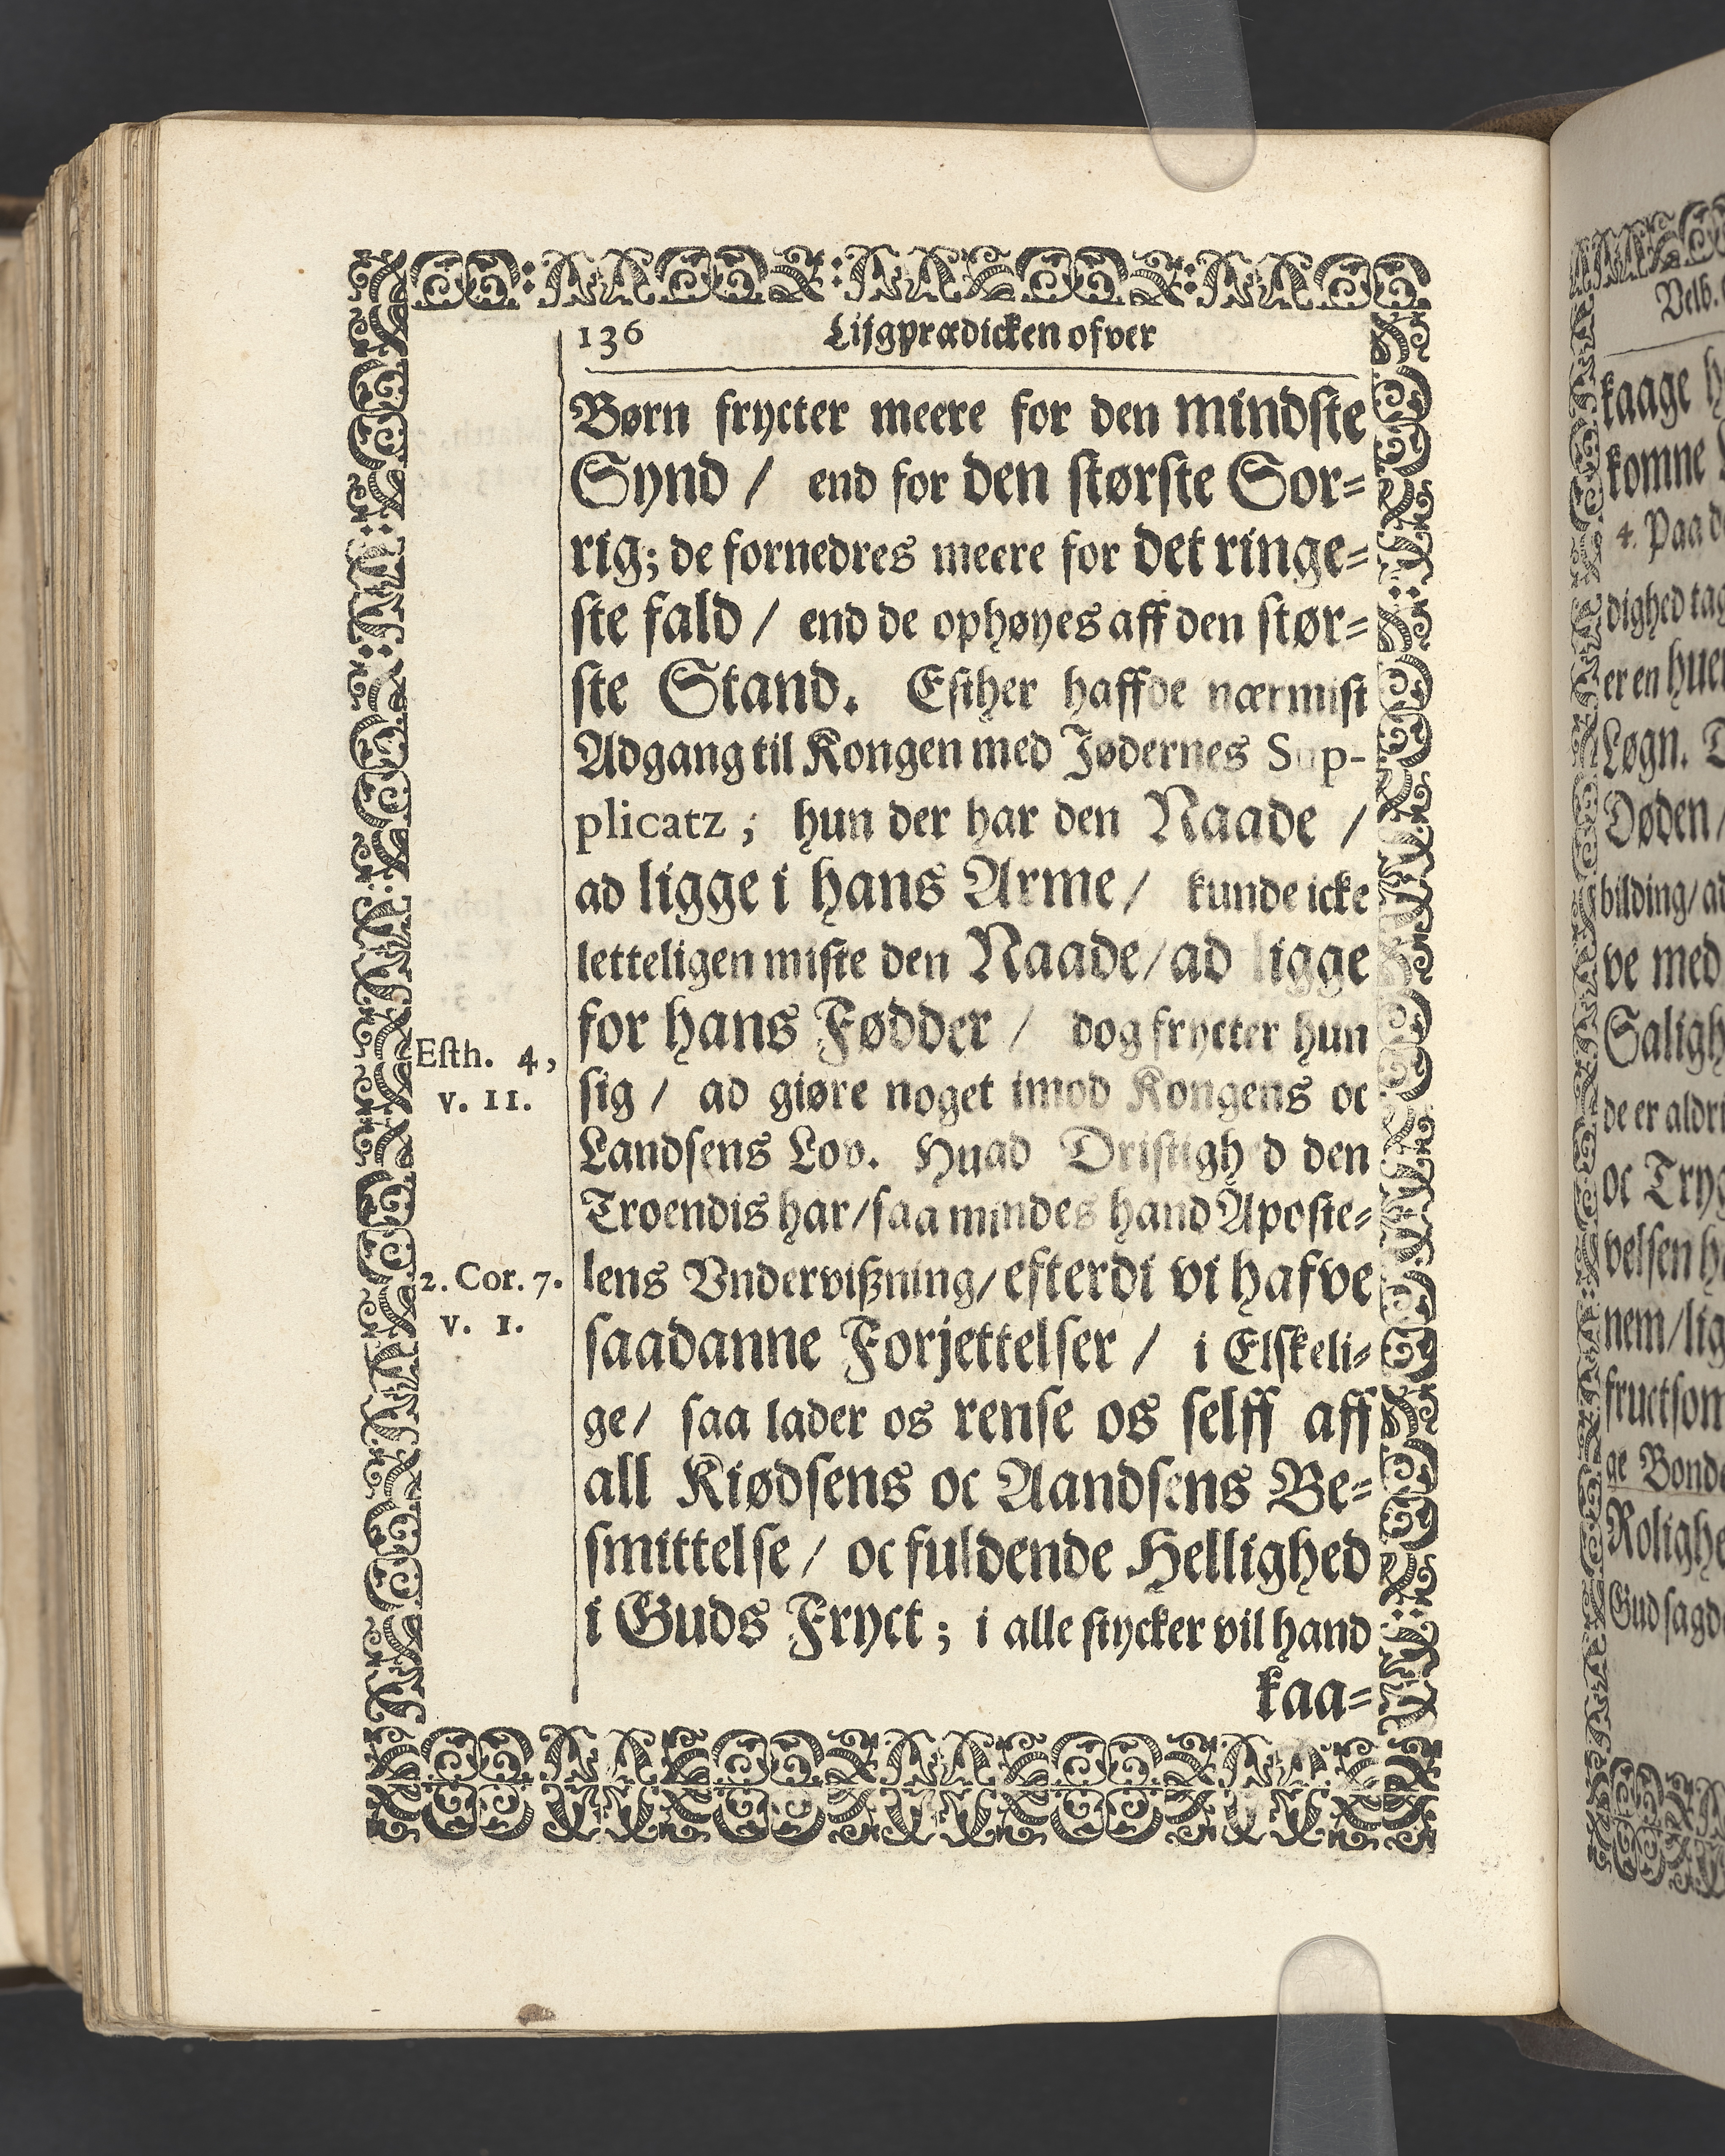 136 Lijgprædicken ofver
Børn frycter meere for den mindste
Synd / end for den største Sor=
rig; de fornedres meere for det ringe=
ste fald / end de ophøyes aff den stør=
ste Stand. Esther haffde nærmist
Adgang til Kongen med Jødernes Sup-
plicatz ; hun der har den Naade /
ad ligge i hans Arme / kunde icke
letteligen miste den Naade / ad ligge
for hans Fødder / dog frycter hun
Esth. 4,
sig / ad giøre noget imod Kongens oc
v. 11.
Landsens Lov. Huad Dristighed den
Troendis har / saa mindes hand Aposte=
lens Vndervißning / efterdi vi hafve
2. Cor. 7.
saadanne Forjettelser / i Elskeli=
v. 1.
ge / saa lader os rense os selff aff
all Kiødsens oc Aandsens Be=
smittelse / oc fuldende Hellighed
i Guds Fryct ; i alle stycker vil hand
kaa=
Velb.
kaage
komne
4. Paa
dighed
er en
Løgn.
Døden /
bilding / ad
ve med
de er
oc
velsen
nem /
Gud